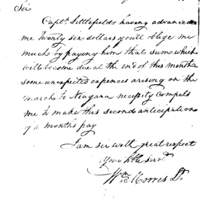 Sir
Capt. Littlefields having advanced
me twenty six dollars you'll oblige me
much by paying him that sum which
will become due at the end of this month
some unexpected expences arising on the
march to Niagara necessity compels
me to make this second anticipation
of a months pay
I am sir with great respect
your
Wm